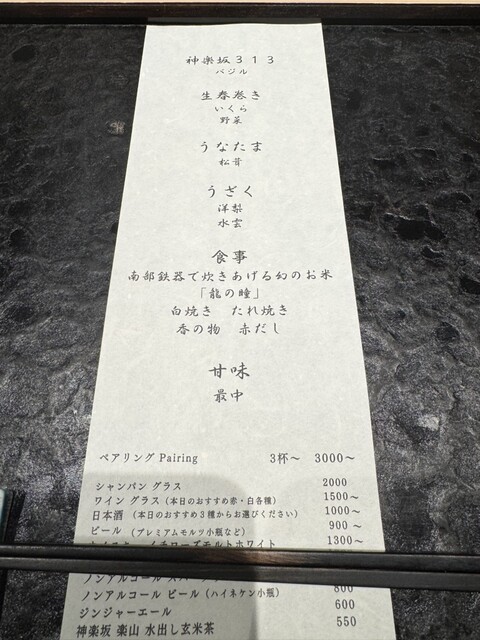 神楽坂３１３
バジル
生春巻き
いくら
野菜
うなたま
松茸
うざく
洋梨
水雲
食事
南部鉄器で炊きあげる幻のお米
「龍の瞳」
白焼き　たれ焼き
香の物　赤だし
甘味
最中
ペアリング Pairing　3杯～　3000～
シャンパン グラス　2000
ワイン グラス（本日のおすすめ赤・白各種）　1500～
日本酒（本日のおすすめ３種からお選びください）　1000～
ビール（プレミアムモルツ小瓶など）　900～
モルトホワイト　1300～
ノンアルコール
ノンアルコール ビール（ハイネケン小瓶）　800
ジンジャーエール　600
神楽坂 楽山 水出し玄米茶　550